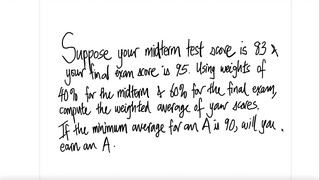 Suppose your midterm test score is 83 &
your final exam score is 95. Using weights of
40% for the midterm & 60% for the final exam,
compute the weighted average of your scores.
If the minimum average for an A is 90, will you
earn an A.